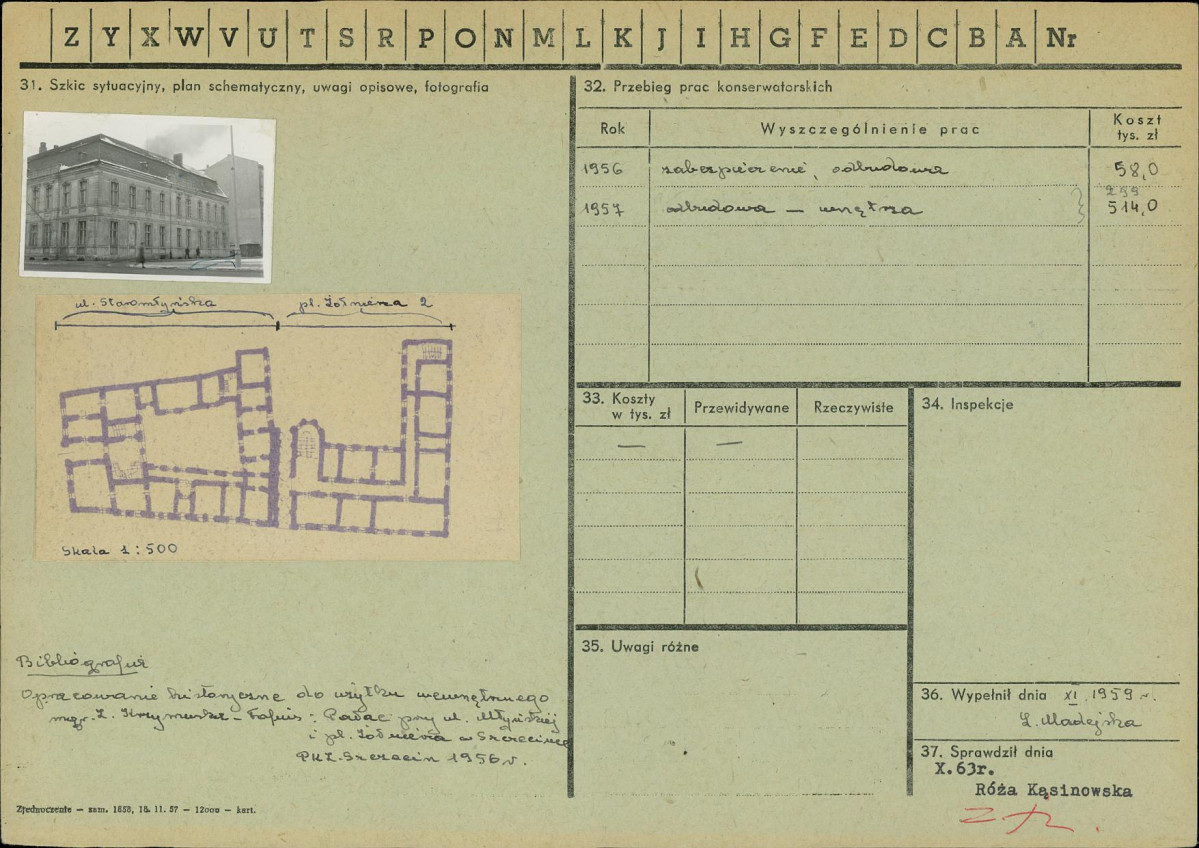 Z Y X W V U T S R P O N M L K J I H G F E D C B A Nr
31. Szkic sytuacyjny, plan schematyczny, uwagi opisowe, fotografia
ul. Staromłyńska pl. Żołnierza 2
Skala 1:500
Bibliografia
Opracowanie historyczne do użytku wewnętrznego
mgr. Z. Krzymuska-Fafius: Pałac przy ul. Młyńskiej
i pl. Żołnierza w Szczecinie
PKZ. Szczecin 1956 r.
Zjednoczenie — zam. 1658, 18. 11. 57 — 12000 — kart.
32. Przebieg prac konserwatorskich
Rok Wyszczególnienie prac Koszt
tys. zł
1956 zabezpieczenie, odbudowa 58,0
299
1957 odbudowa — wnętrza 514,0
33. Koszty
w tys. zł Przewidywane Rzeczywiste
— —
34. Inspekcje
35. Uwagi różne
36. Wypełnił dnia XI. 1959 r.
Z. Madejska
37. Sprawdził dnia
X.63r.
Róża Kąsinowska